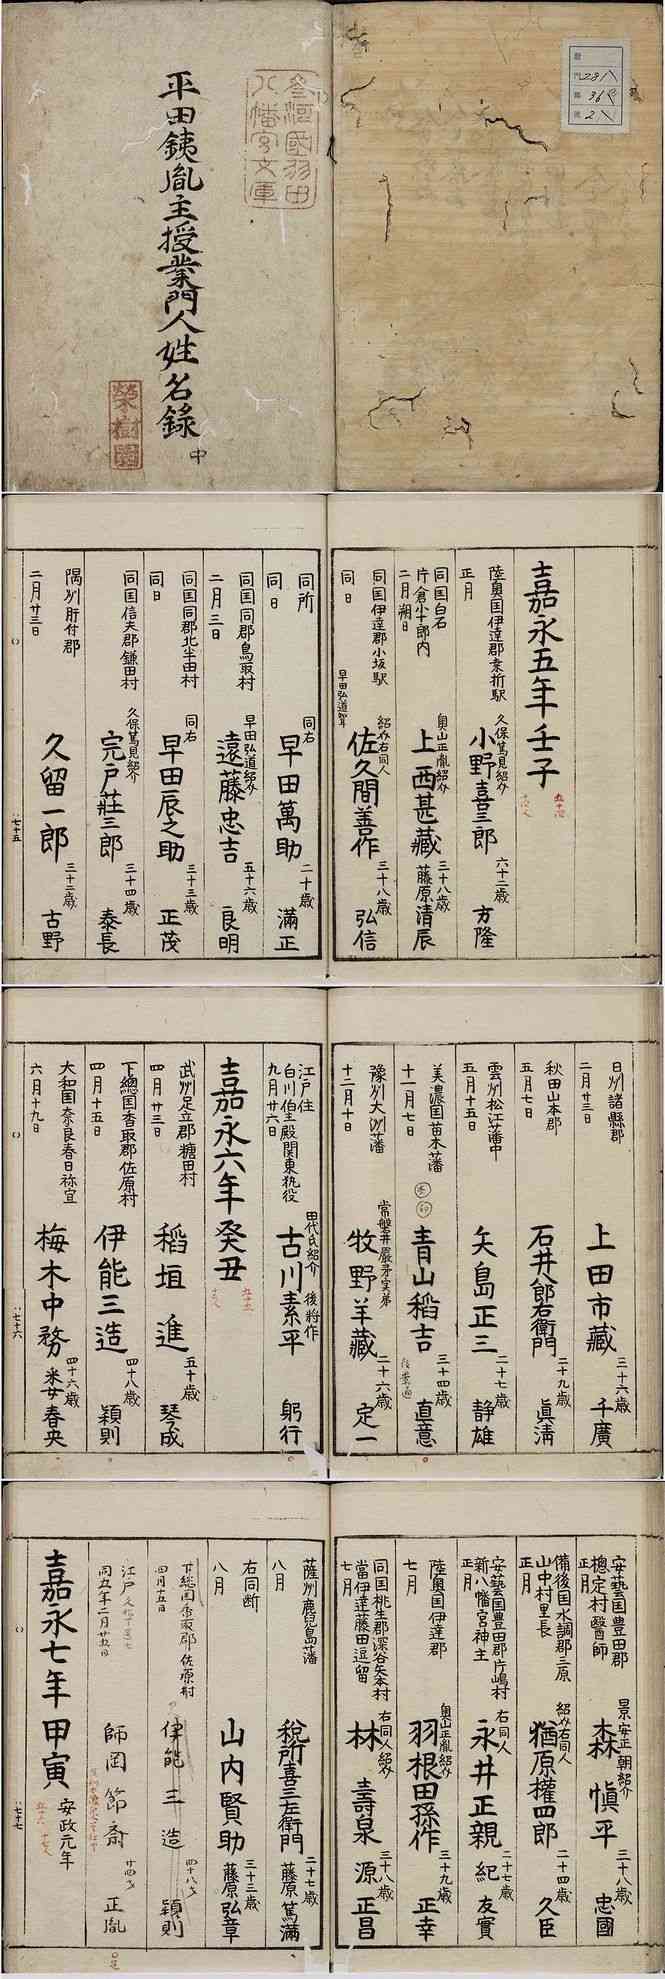 平田銕胤主授業門人姓名錄 中
参河國羽田
八幡宮文庫
榮樹園
281
36
2
嘉永五年壬子
陸奥国伊達郡桑折駅
正月
久保篤見紹介
小野喜三郎 六十二歳 方隆
同国白石
片倉小十郎内
二月朔日
奥山正胤紹介
上西甚藏 三十八歳 藤原清辰
同国伊達郡小坂駅
同日
早田弘道聟
紹介右同人
佐久間善作 三十八歳 弘信
同所
同日
同右
早田萬助 二十歳 滿正
同国同郡鳥取村
二月三日
早田弘道紹介
遠藤忠吉 五十六歳 良明
同国同郡北半田村
同日
同右
早田辰之助 三十三歳 正茂
同国信夫郡鎌田村
同日
久保篤見紹介
宍戸莊三郎 三十四歳 泰長
隅州肝付郡
二月廿三日
久留一郎 三十二歳 古野
七十五
日州諸縣郡
二月廿三日
上田市藏 三十六歳 千廣
秋田山本郡
五月七日
石井八郎右衛門 二十九歳 眞清
雲州松江藩中
五月十五日
矢島正三 二十七歳 静雄
美濃国苗木藩
十一月七日
青山稻吉 三十四歳 直意
豫州大洲藩
十二月十日
常磐井嚴矛実弟
牧野羊藏 二十六歳 定一
江戸住
白川伯王殿関東執役
九月廿六日
田代氏紹介
古川素平 後將作 躬行
嘉永六年癸丑
武州足立郡糖田村
四月廿三日
稻垣進 五十歳 琴成
下總国香取郡佐原村
四月十五日
伊能三造 四十八歳 穎則
大和国奈良春日祢宜
六月十九日
梅木中務 四十六歳 春央
七十六
安藝国豊田郡
椋定村醫師
正月
景安正朝紹介
森愼平 三十八歳 忠國
備後国水調郡三原
山中村里長
正月
紹介右同人
猶原權四郎 二十四歳 久臣
安藝国豊田郡片嶋村
新八幡宮神主
正月
右同人
永井正親 二十七歳 紀友實
陸奥国伊達郡
七月
奥山正胤紹介
羽根田孫作 三十九歳 正幸
同国桃生郡深谷矢本村
當伊達藤田逗留
七月
右同人紹介
林壽泉 三十八歳 源正昌
薩州鹿兒島藩
八月
税所喜三左衛門 二十七歳 藤原篤滿
右同断
八月
山内賢助 三十三歳 藤原弘章
下総国香取郡佐原村
四月十五日
伊能三造 四十八才 穎則
江戸
同五年二月廿五日
師岡節斎 廿四才 正胤
嘉永七年甲寅 安政元年
七十七